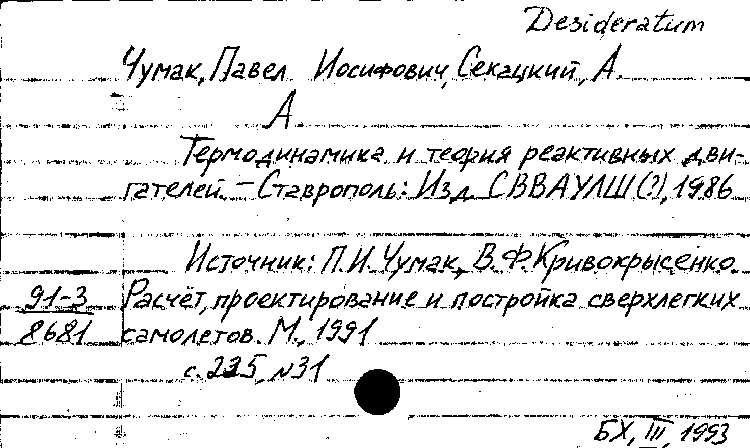 Desideratum
Чумак, Павел Иосифович, Секацкий, А.
А
Термодинамика и теория реактивных дви-
гателей. – Ставрополь: Изд. СВВАУЛШ(?), 1986
Источник: П.И. Чумак, В.Ф. Кривокрысенко.
91-3 Расчёт, проектирование и постройка сверхлегких
8681 самолетов. М., 1991
с. 225, N31
БХ, III, 1993